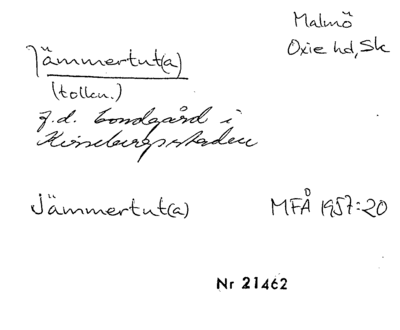 Malmö
Oxie hd, Sk
Jämmertut(a)
(tolkn.)
f.d. bondgård i
Kirsebergsstaden
Jämmertut(a)
MFÅ 1957:20
Nr 21462